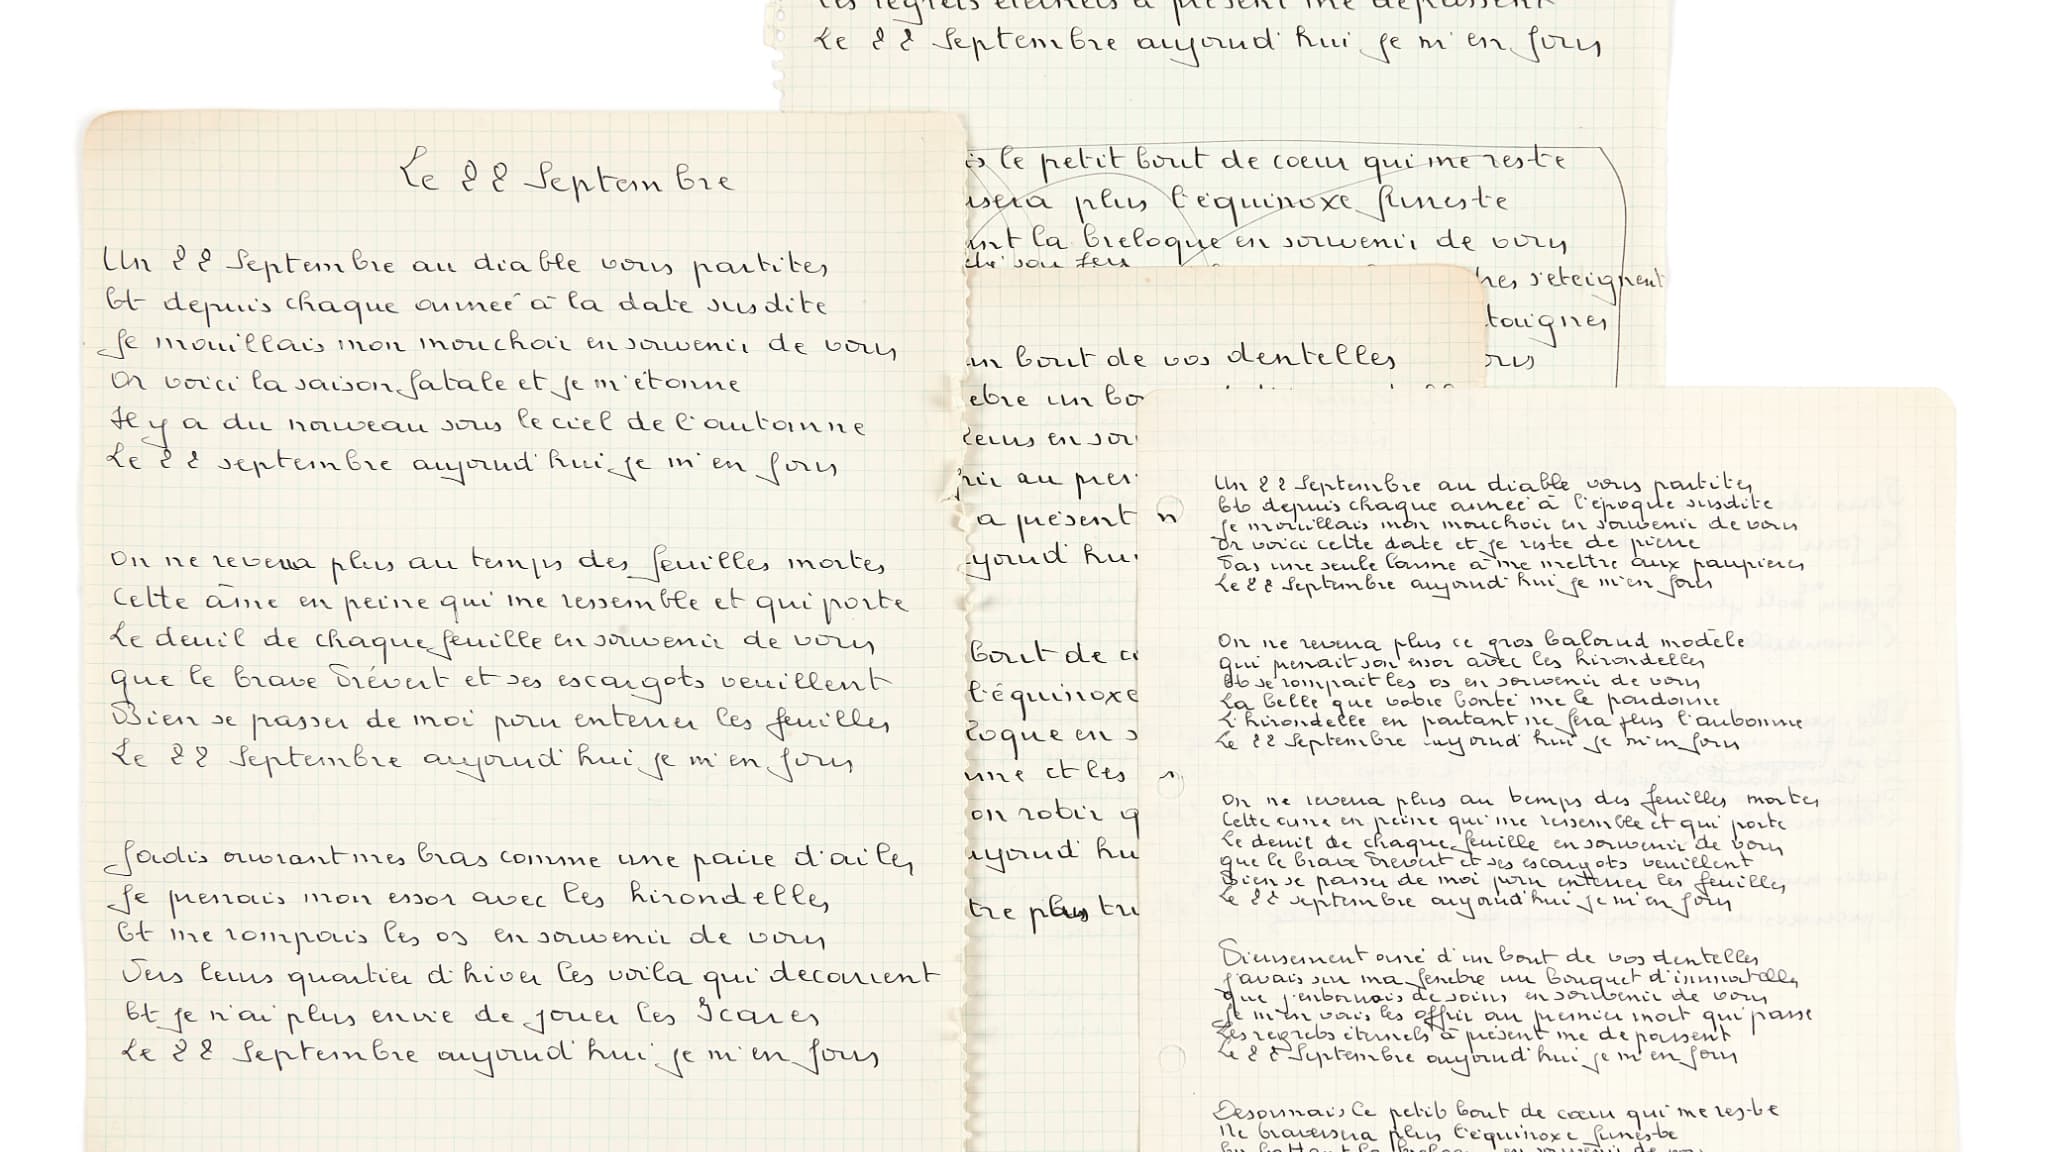 Les regrets éternels à présent me dépassent
Le 22 Septembre aujourd'hui je m'en fous
le petit bout de coeur qui me reste
plus l'équinoxe funeste
la breloque en souvenir de vous
son feu
s'éteignent
Le 22 Septembre
Un 22 Septembre au diable vous partites
Et depuis chaque année à la date susdite
Je mouillais mon mouchoir en souvenir de vous
Or voici la saison fatale et je m'étonne
Il y a du nouveau sous le ciel de l'automne
Le 22 septembre aujourd'hui je m'en fous
On ne reverra plus au temps des feuilles mortes
Cette âme en peine qui me ressemble et qui porte
Le deuil de chaque feuille en souvenir de vous
Que le brave Prévert et ses escargots veuillent
Bien se passer de moi pour enterrer les feuilles
Le 22 Septembre aujourd'hui je m'en fous
Jadis ouvrant mes bras comme une paire d'ailes
Je prenais mon essor avec les hirondelles
Et me rompais les os en souvenir de vous
Vers leurs quartier d'hiver les voila qui decarrent
Et je n'ai plus envie de jouer les Icares
Le 22 Septembre aujourd'hui je m'en fous
un bout de vos dentelles
un bo
en sou
au prem
a présent
hui
bout de c
l'équinoxe
en s
et les
hu
plus
Un 22 Septembre au diable vous partites
Et depuis chaque année à l'époque susdite
Je mouillais mon mouchoir en souvenir de vous
Or voici cette date et je reste de pierre
Pas une seule larme à me mettre aux paupieres
Le 22 Septembre aujourd'hui je m'en fous
On ne reverra plus ce gros balourd modèle
Qui prenait son essor avec les hirondelles
Et se rompait les os en souvenir de vous
La belle que votre bonté me le pardonne
L'hirondelle en partant ne fera plus l'automne
Le 22 Septembre aujourd'hui je m'en fous
On ne reverra plus au temps des feuilles mortes
Cette ame en peine qui me ressemble et qui porte
Le deuil de chaque feuille en souvenir de vous
Que le brave Prévert et ses escargots veuillent
Bien se passer de moi pour enterrer les feuilles
Le 22 septembre aujourd'hui je m'en fous
Pieusement orné d'un bout de vos dentelles
J'avais sur ma fenêtre un bouquet d'immortelles
Que j'entourais de soins en souvenir de vous
Je m'en vais les offrir au premier mort qui passe
Les regrets éternels à présent me dépassent
Le 22 Septembre aujourd'hui je m'en fous
Desormais le petit bout de coeur qui me reste
Ne traversera plus l'équinoxe funeste